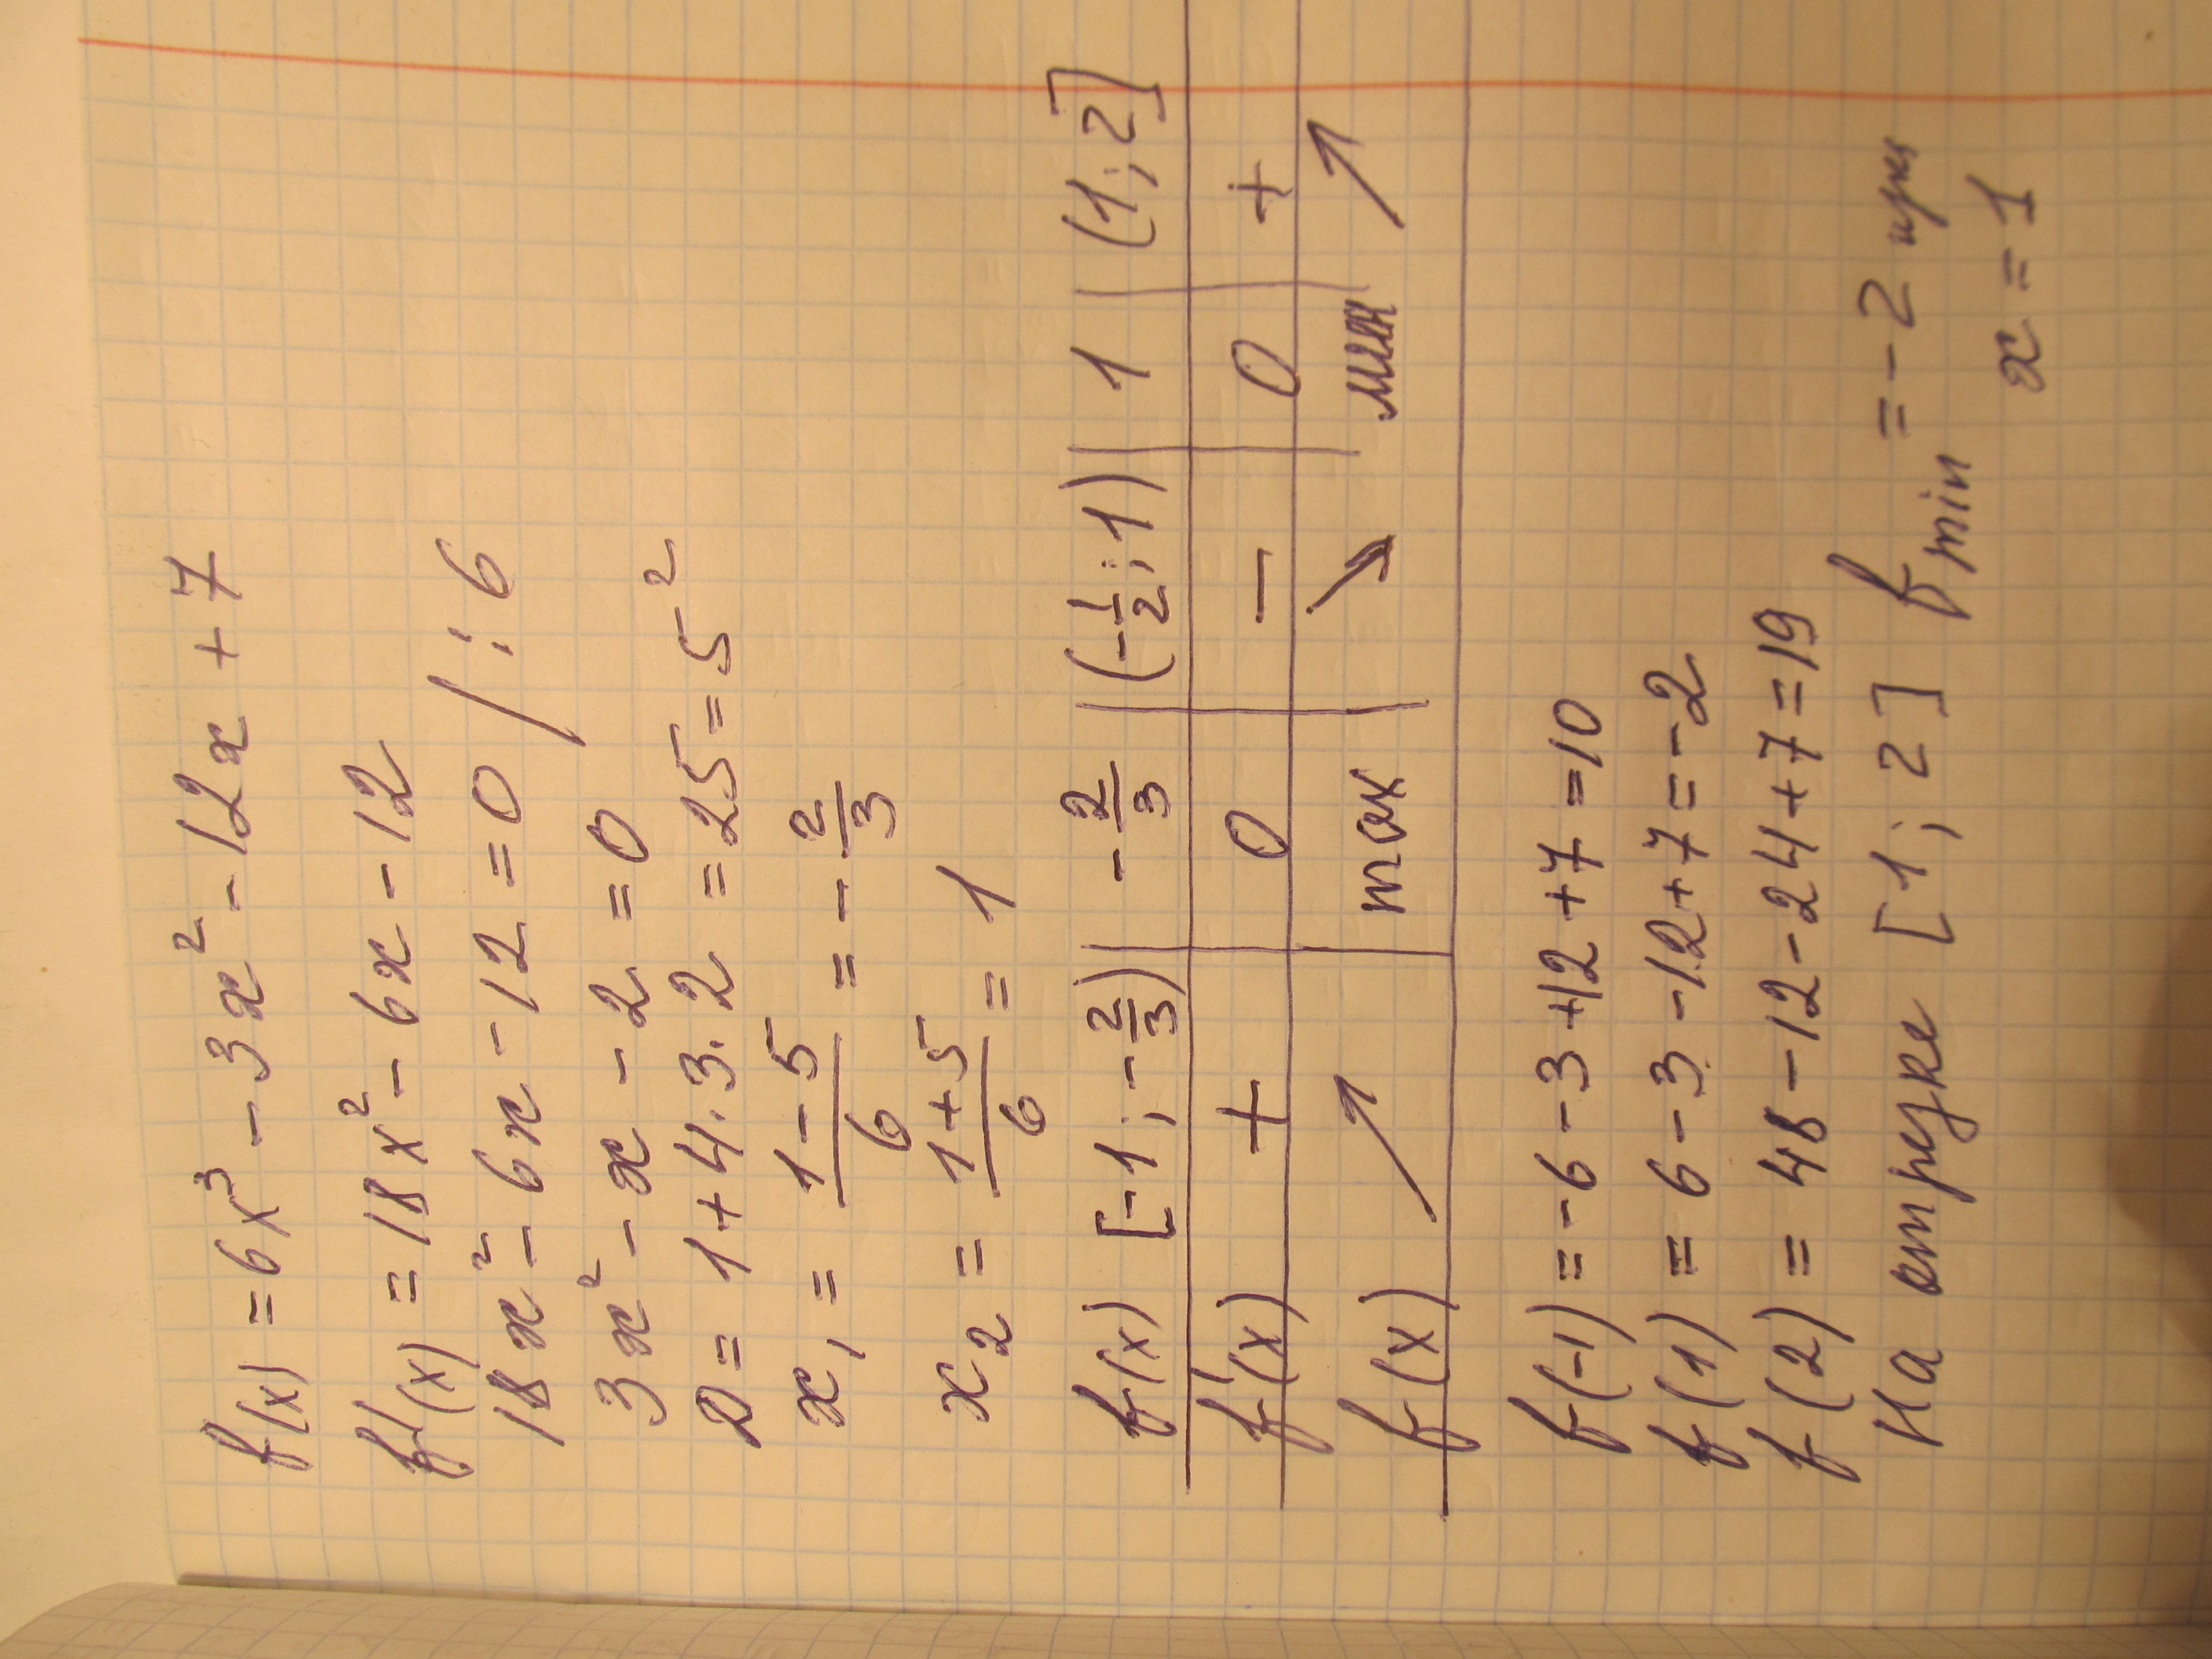 f(x) = 6x³ - 3x² - 12x + 7
f'(x) = 18x² - 6x - 12
18x² - 6x - 12 = 0 / : 6
3x² - x - 2 = 0
D = 1 + 4·3·2 = 25 = 5²
x₁ = (1 - 5)/6 = - 2/3
x₂ = (1 + 5)/6 = 1
f(x) [-1; -2/3) | -2/3 | (-1/2; 1) | 1 | (1; 2]
f'(x) + | 0 | - | 0 | +
f(x) ↗ | max | ↘ | мин | ↗
f(-1) = -6 - 3 + 12 + 7 = 10
f(1) = 6 - 3 - 12 + 7 = -2
f(2) = 48 - 12 - 24 + 7 = 19
На отрезке [1; 2] fmin = -2 при
x = 1